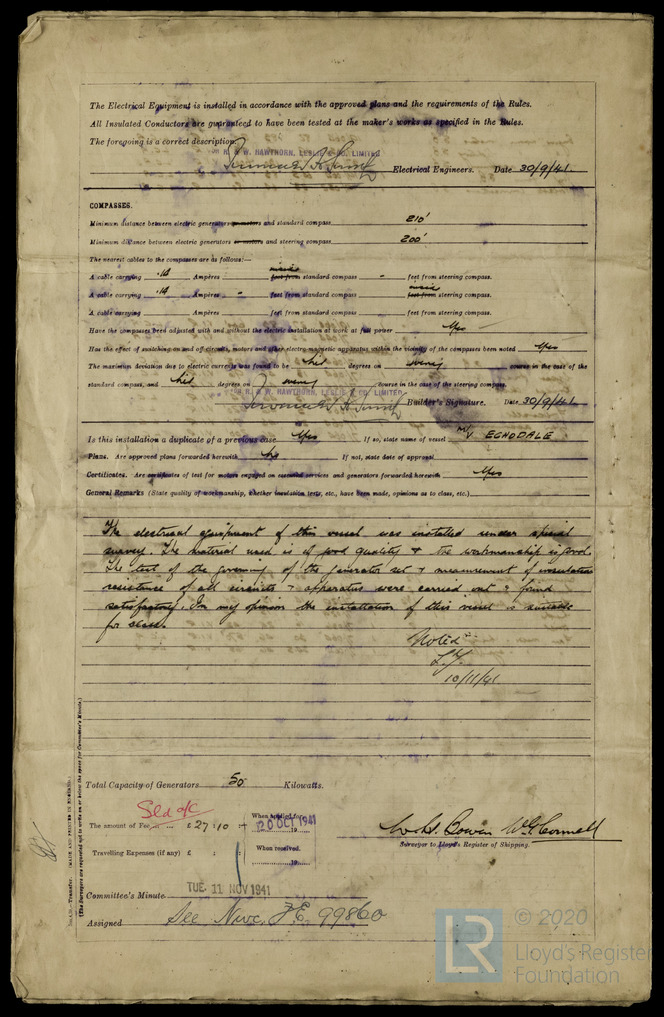 The Electrical Equipment is installed in accordance with the approved plans and the requirements of the Rules.
All Insulated Conductors are guaranteed to have been tested at the maker's works as specified in the Rules.
The foregoing is a correct description.
R. & W. HAWTHORN, LESLIE & CO. LIMITED
Electrical Engineers. Date 30/9/41.
COMPASSES.
Minimum distance between electric generators or motors and standard compass 210'
Minimum distance between electric generators or motors and steering compass 200'
The nearest cables to the compasses are as follows:—
A cable carrying .14 Ampères - inside feet from standard compass - feet from steering compass.
A cable carrying .14 Ampères - feet from standard compass inside feet from steering compass.
A cable carrying Ampères feet from standard compass feet from steering compass.
Have the compasses been adjusted with and without the electric installation at work at full power Yes
Has the effect of switching on and off circuits, motors and other electro magnetic apparatus within the vicinity of the compasses been noted Yes
The maximum deviation due to electric currents was found to be Nil degrees on every course in the case of the
standard compass, and Nil degrees on every course in the case of the steering compass.
R. & W. HAWTHORN, LESLIE & CO. LIMITED
Builder's Signature. Date 30/9/41
Is this installation a duplicate of a previous case Yes If so, state name of vessel M/V EGNODALE
Plans. Are approved plans forwarded herewith No If not, state date of approval
Certificates. Are certificates of test for motors engaged on essential services and generators forwarded herewith Yes
General Remarks (State quality of workmanship, whether insulation tests, etc., have been made, opinions as to class, etc.)
The electrical equipment of this vessel was installed under special
survey. The material used is of good quality & the workmanship is good.
The test of the governing of the generator set & measurement of insulation
resistance of all circuits & apparatus were carried out & found
satisfactory. In my opinion the installation of this vessel is suitable
for class.
Noted
10/11/41
Total Capacity of Generators 50 Kilowatts.
The amount of Fee £ 27 : 10 : When applied for 20 OCT 1941 19
Travelling Expenses (if any) £ : : When received. 19
W. S. Bowen W. G. Connell
Surveyor to Lloyd's Register of Shipping.
Committee's Minute TUE. 11 NOV 1941
Assigned See Nwc. F.E. 99860
(The Surveyors are requested not to write on or below the space for Committee's Minute.)
LR
© 2020
Lloyd's Register
Foundation